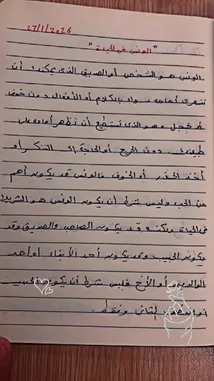 27/1/2026
"الونس في الحياة"
الونس هو الشخص أو الصديق الذي يمكنك أن
تتعرى أمامه سواء بالكلام أو الأفعال دون خوف
خجل وهو الذي تستطيع أن تظهر أمامه على
طبيعتك دون الحرج أو الحاجة إلى التنكر أو
أخذ الحذر أو الخوف فالونس قد يكون أهم
من الحب وليس شرط أن يكون الونس هو الشريك
في الحياة ولكنه قد يكون الصاحب والصديق وقد
يكون الحبيب وقد يكون أحد الأبناء أو أحد
الوالدين أو الأخ فليس شرط أن يكون الحبيب
أو